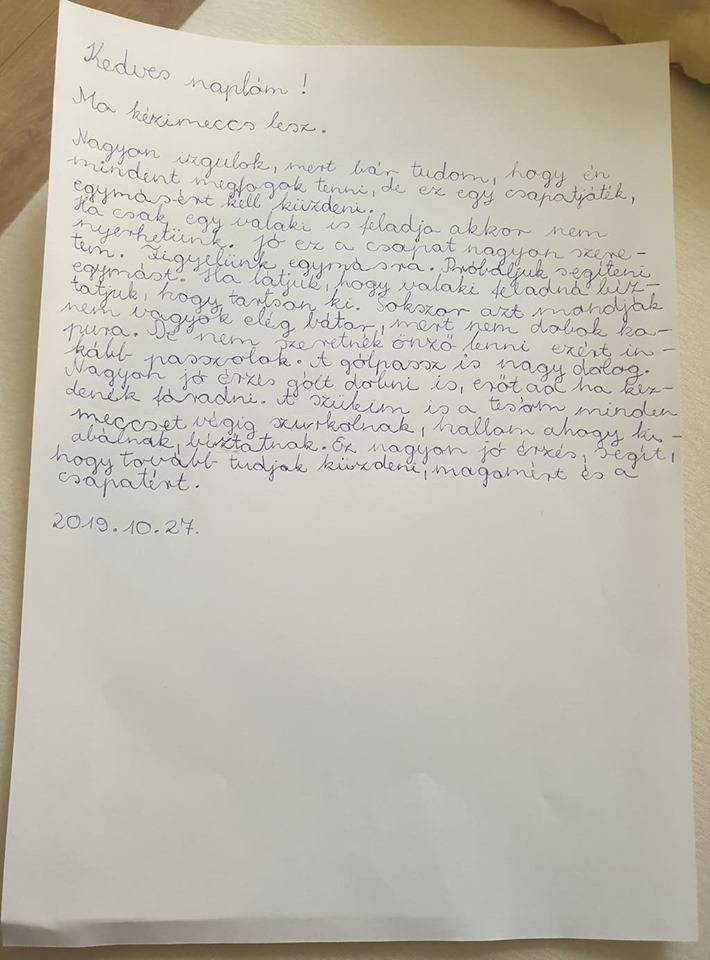 Kedves naplóm!
Ma kézimeccs lesz.
Nagyon izgulok, mert bár tudom, hogy én
mindent megfogok tenni, de ez egy csapatjáték,
egymásért kell küzdeni.
Ha csak egy valaki is feladja akkor nem
nyerhetünk. Jó ez a csapat nagyon szere-
tem. Figyelünk egymásra. Próbáljuk segíteni
egymást. Ha látjuk, hogy valaki feladná bíz-
tatjuk, hogy tartson ki. Sokszor azt mondják
nem vagyok elég bátor, mert nem dobok ka-
pura. De nem szeretnék önző lenni ezért in-
kább passzolok. A gólpassz is nagy dolog.
Nagyon jó érzés gólt dobni is, erőt ad ha kez-
denék fáradni. A szüleim is a tesóm minden
meccset végig szurkolnak, hallom ahogy ki-
abálnak, bíztatnak. Ez nagyon jó érzés, segít,
hogy tovább tudjak küzdeni, magamért és a
csapatért.
2019.10.27.